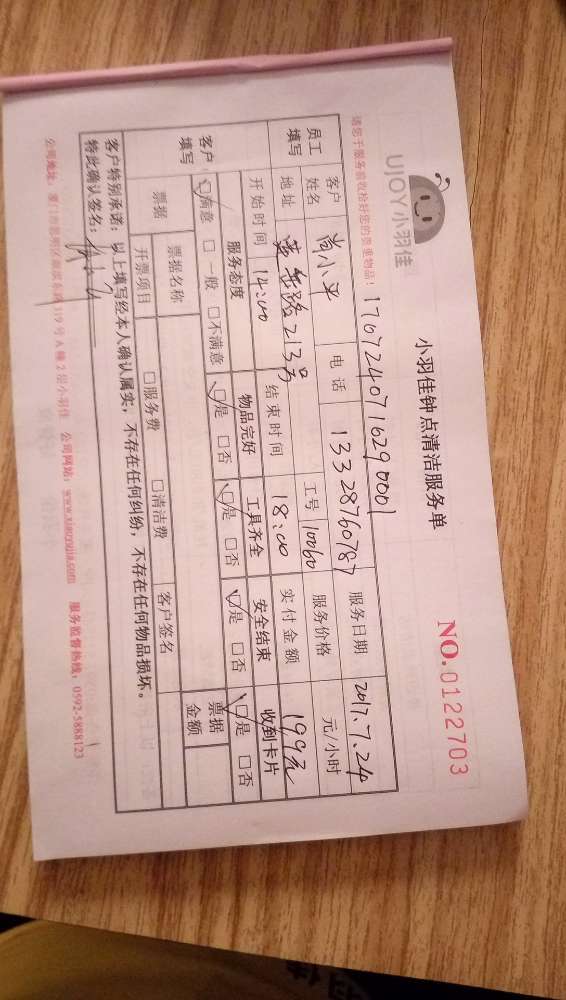 UJOY小羽佳
小羽佳钟点清洁服务单
NO.0122703
请您于服务前收拾好您的贵重物品!
1767240716290001
员工填写 客户姓名 尚小平 电话 13328760787 服务日期 2017.7.24
地址 莲岳路213号 工号 10060 服务价格 元/小时
开始时间 14:00 结束时间 18:00 实付金额 199元
客户填写 服务态度 物品完好 工具齐全 安全结束 收到卡片
☑满意 □一般 □不满意 ☑是 □否 ☑是 □否 ☑是 □否 ☑是 □否
票据 票据名称 票据金额
开票项目 □服务费 □清洁费 客户签名
客户特别承诺:以上填写经本人确认属实,不存在任何纠纷,不存在任何物品损坏。
特此确认签名:
公司地址:厦门市思明区 319号A幢2层小羽佳 公司网站:www.xiaoyujia.com 服务监督热线:0592-5888123